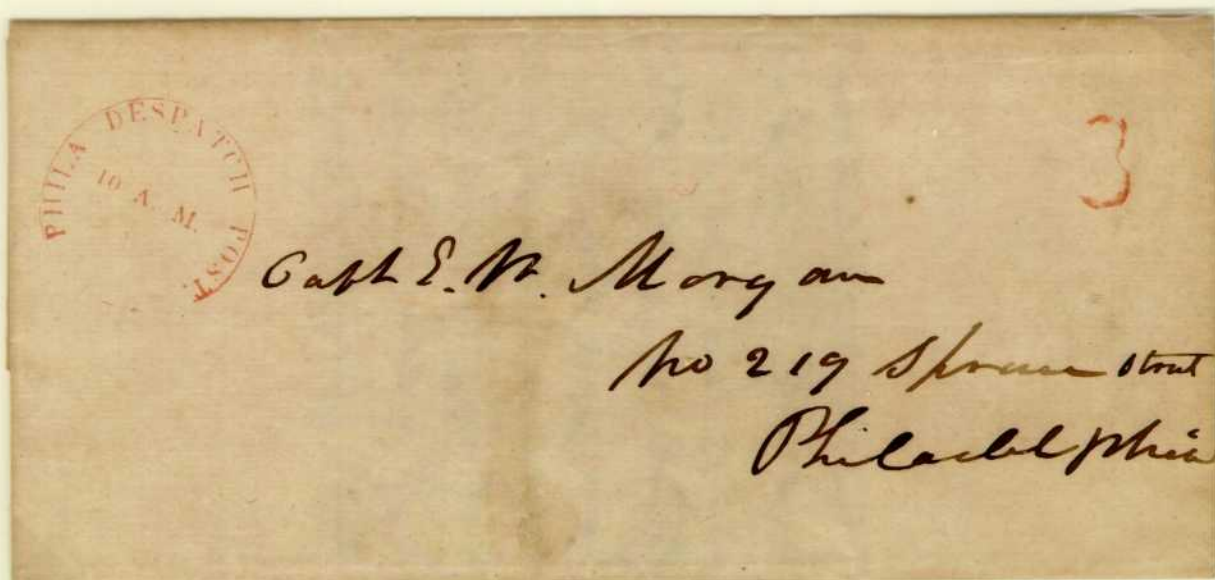 PHILA DESPATCH POST.
10 A. M.
3
Capt E. W. Morgan
No 219 Spruce Street
Philadelphia